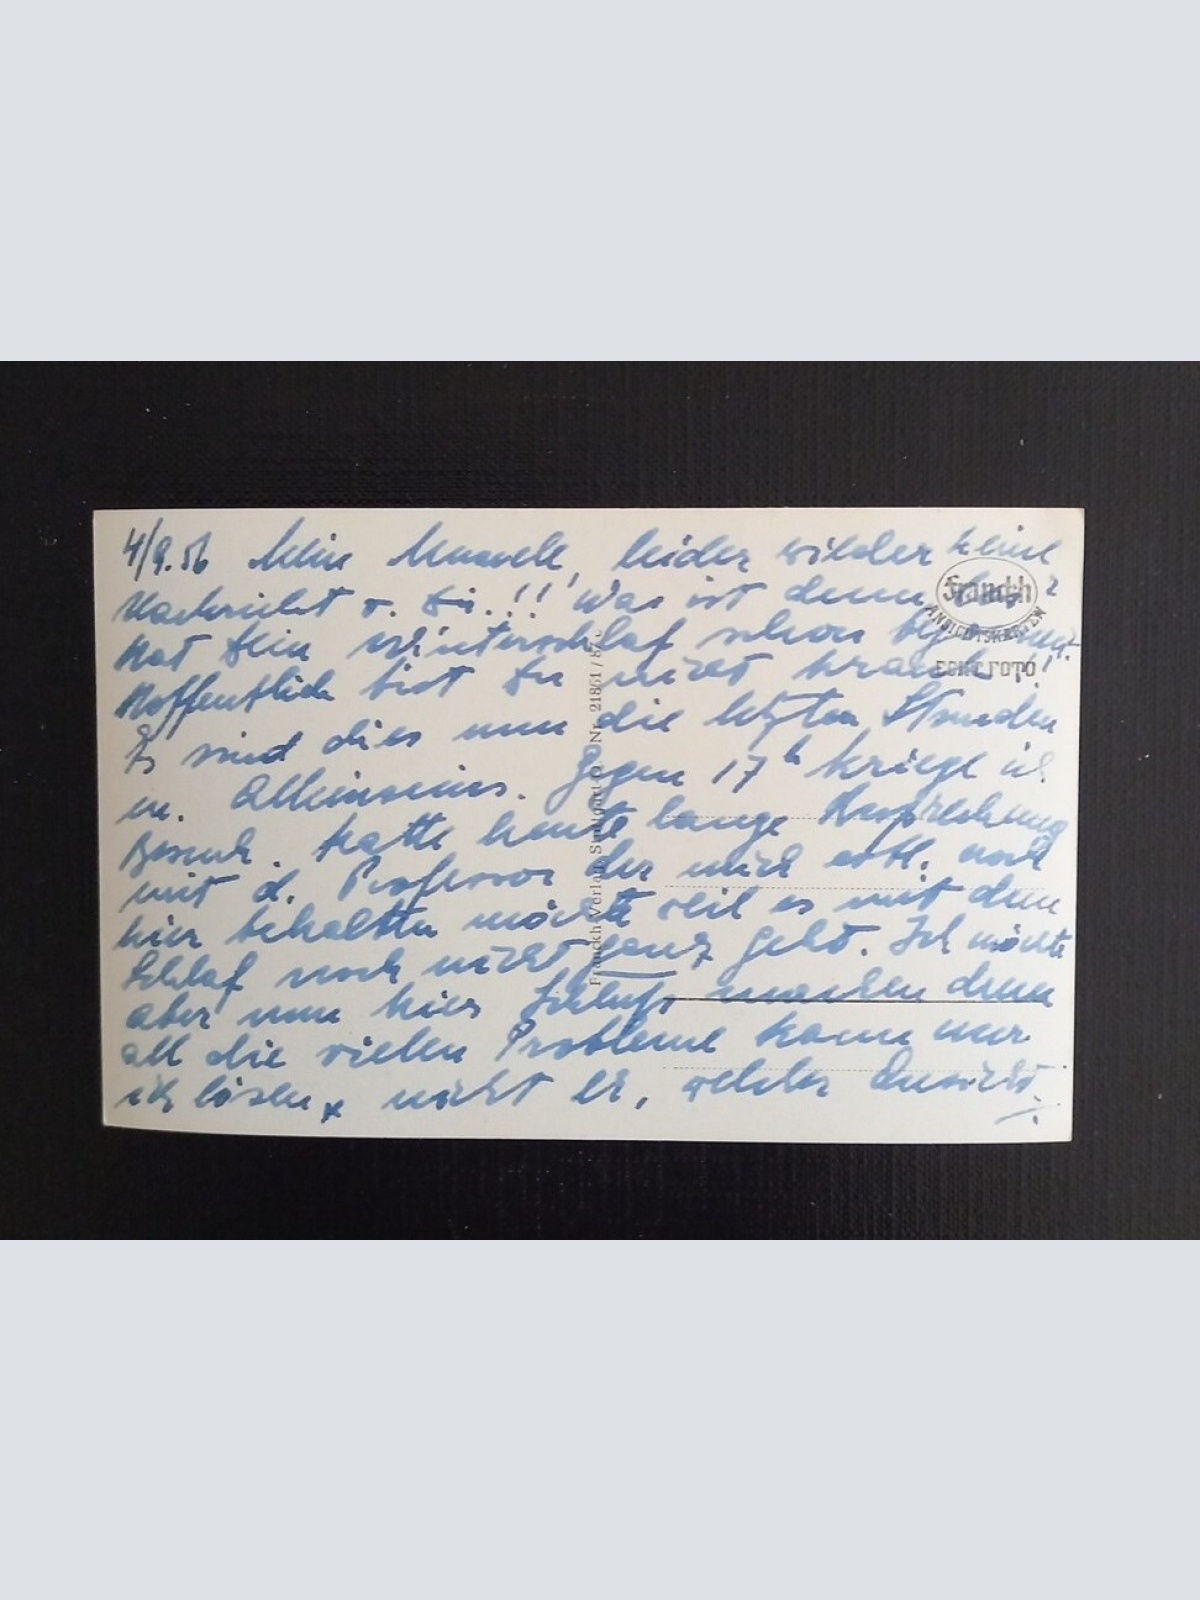 4/9.56 Mein leider wieder keine
Nachricht v. Dir.!! Was ist denn los?
Hat Dein Winterschlaf schon begonnen?
Hoffentlich bist Du nicht krank!!
Es sind dies nun die letzten Stunden
m. Alleinseins. Gegen 17h kriege ich
Besuch. Hatte heute lange Besprechung
mit d. Professor der mich evtl. noch
hier behalten möchte weil es mit dem
Schlaf noch nicht ganz geht. Ich möchte
aber nun hier Schluß machen denn
all die vielen Probleme kann nur
ich lösen, nicht er, welcher
Franckh
ANSICHTSKARTEN
ECHT FOTO
Franckh-Verlag Stuttgart-O Nr. 21861/87c